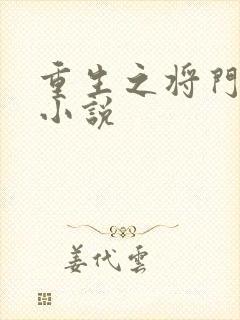 重生之将門
小説
姜代雲